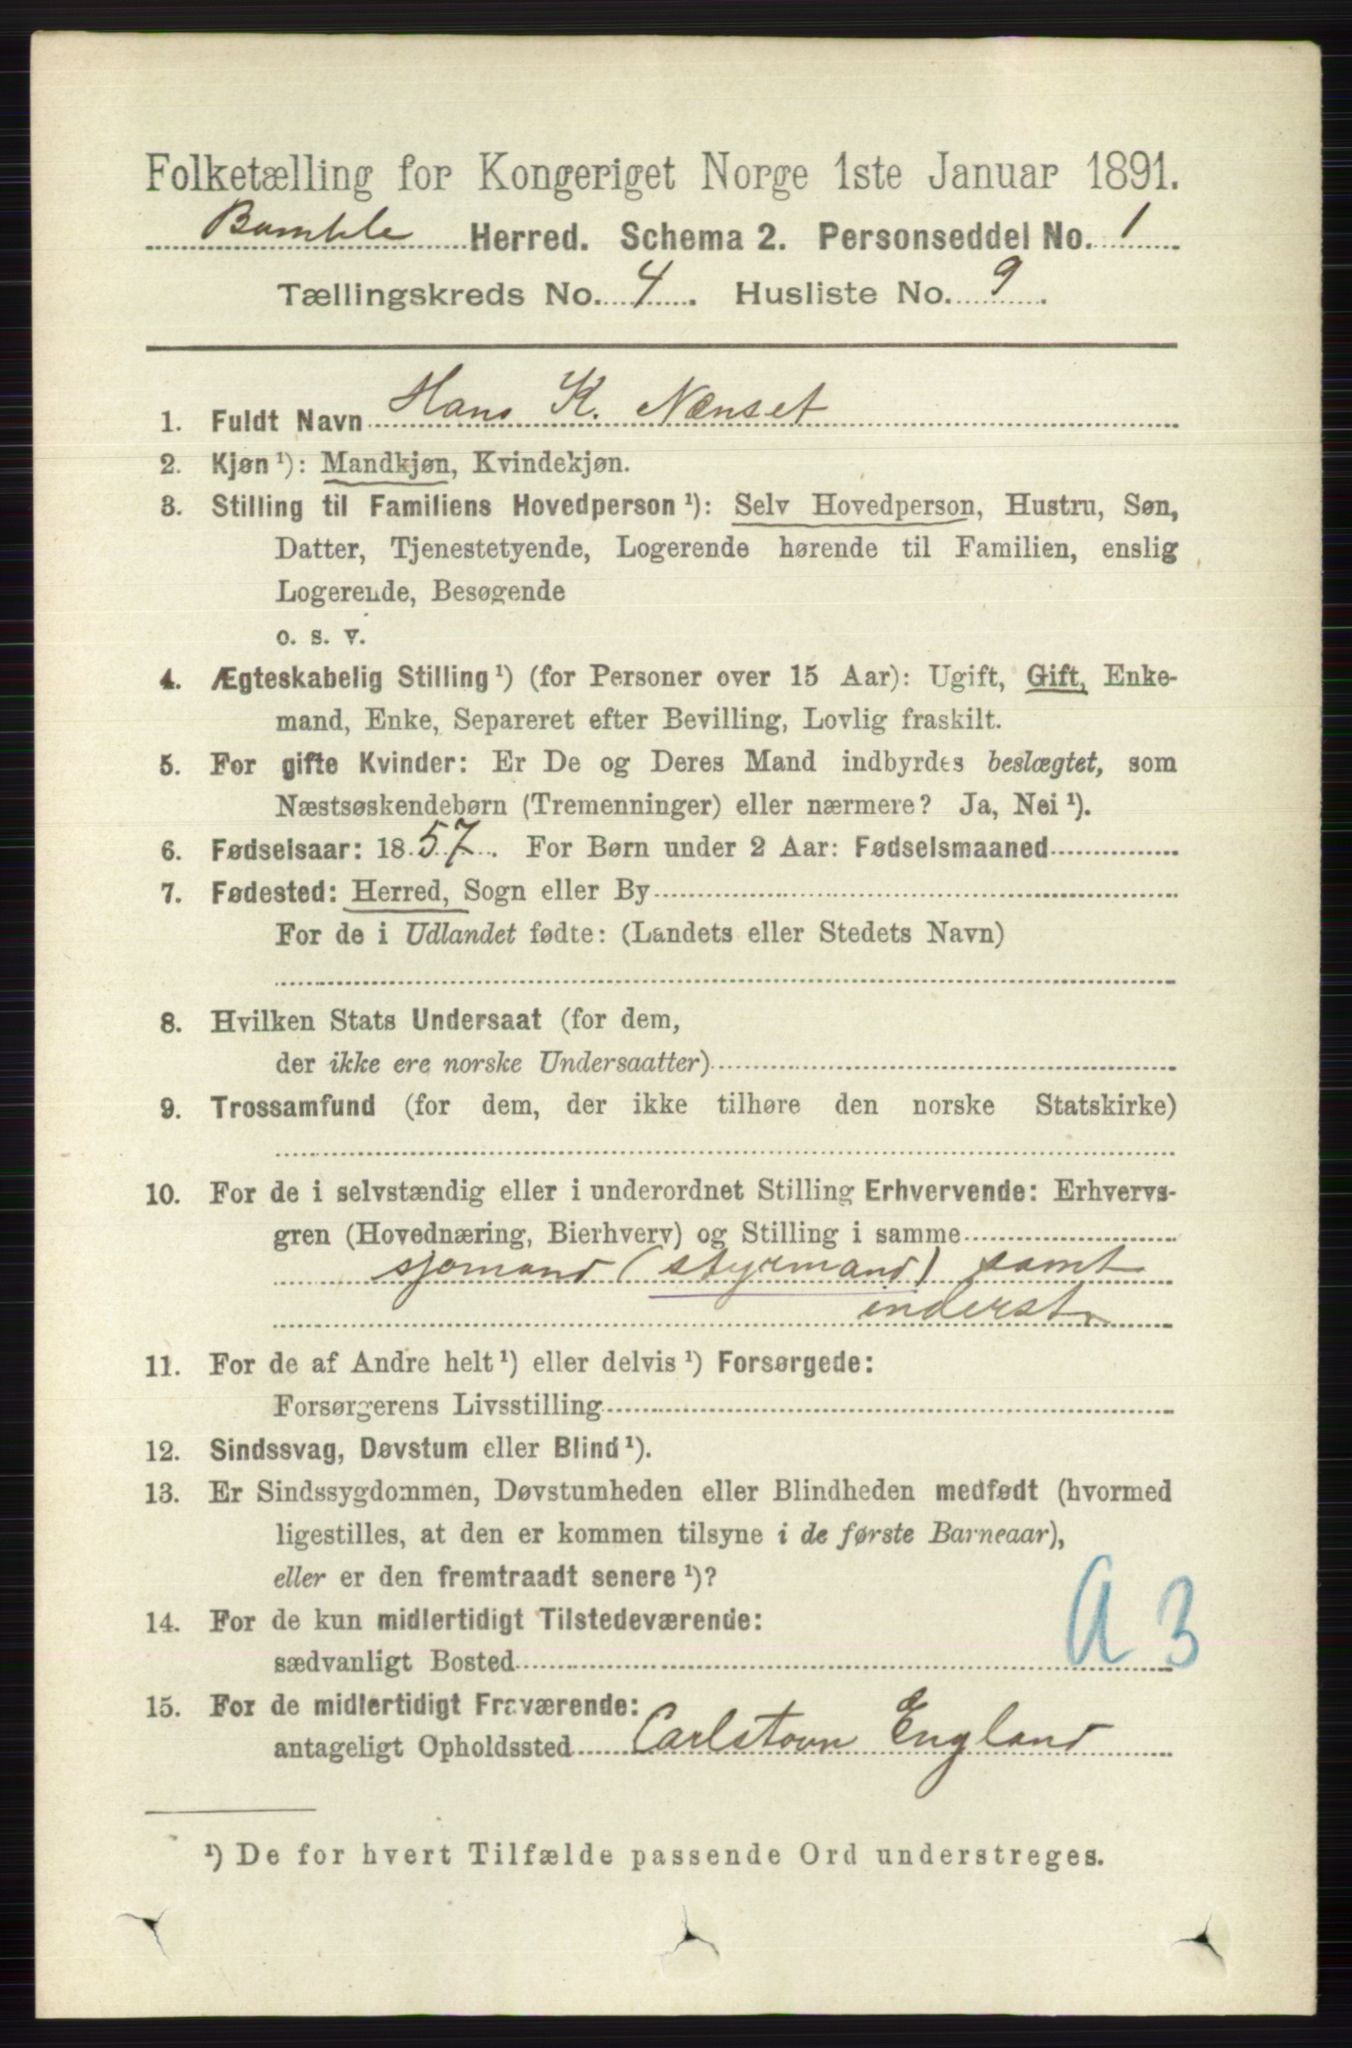 Folketælling for Kongeriget Norge 1ste Januar 1891.
Bamble Herred. Schema 2. Personseddel No. 1
Tællingskreds No. 4. Husliste No. 9.
1. Fuldt Navn Hans K. Nænset
2. Kjøn ¹): Mandkjøn, Kvindekjøn.
3. Stilling til Familiens Hovedperson ¹): Selv Hovedperson, Hustru, Søn,
Datter, Tjenestetyende, Logerende hørende til Familien, enslig
Logerende, Besøgende
o. s. v.
4. Ægteskabelig Stilling ¹) (for Personer over 15 Aar): Ugift, Gift, Enke-
mand, Enke, Separeret efter Bevilling, Lovlig fraskilt.
5. For gifte Kvinder: Er De og Deres Mand indbyrdes beslægtet, som
Næstsøskendebørn (Tremenninger) eller nærmere? Ja, Nei ¹).
6. Fødselsaar: 1857. For Børn under 2 Aar: Fødselsmaaned
7. Fødested: Herred, Sogn eller By
For de i Udlandet fødte: (Landets eller Stedets Navn)
8. Hvilken Stats Undersaat (for dem,
der ikke ere norske Undersaatter)
9. Trossamfund (for dem, der ikke tilhøre den norske Statskirke)
10. For de i selvstændig eller i underordnet Stilling Erhvervende: Erhvervs-
gren (Hovednæring, Bierhverv) og Stilling i samme
sjømand (styrmand) samt
inderst
11. For de af Andre helt ¹) eller delvis ¹) Forsørgede:
Forsørgerens Livsstilling
12. Sindssvag, Døvstum eller Blind ¹).
13. Er Sindssygdommen, Døvstumheden eller Blindheden medfødt (hvormed
ligestilles, at den er kommen tilsyne i de første Barneaar),
eller er den fremtraadt senere ¹)?
14. For de kun midlertidigt Tilstedeværende:
sædvanligt Bosted
A 3
15. For de midlertidigt Fraværende:
antageligt Opholdssted Carlstovn England
¹) De for hvert Tilfælde passende Ord understreges.